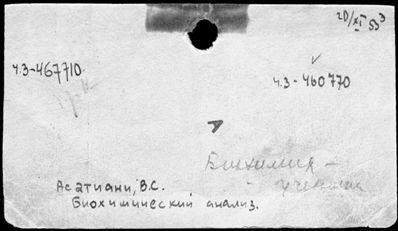 20/XI 53³
ч.з-467710.
ч.з-460770
Биохимия -
учебник
Асатиани, В.С.
Биохимический анализ.